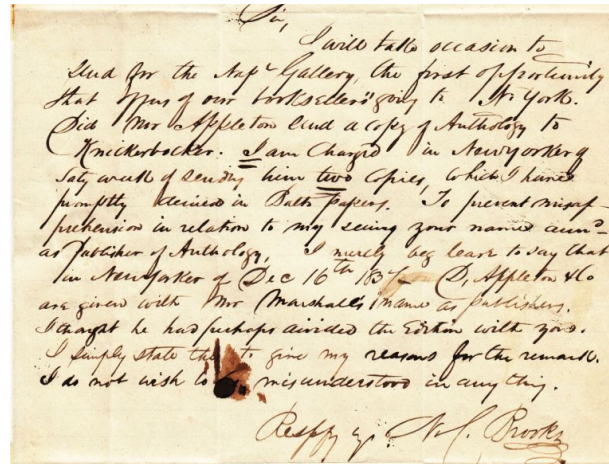 Sir,
I will take occasion to
send for the Nap.n Gallery, the first opportunity
that offers of our booksellers going to N. York.
Did Mr Appleton send a copy of Anthology to
Knickerbocker. I am Charged in New Yorker of
Saty week of sending him two Copies, which I have
promptly denied in Balt. papers. To prevent misap-
prehension in relation to my seeing your name annd
as Publisher of Anthology, I merely beg leave to say that
in New Yorker of Dec 16th 1837 D, Appleton & Co
are given with Mr Marshall's name as publishers.
I thought he had perhaps divided the Edition with you.
I simply state this to give my reasons for the remark.
I do not wish to be misunderstood in any thing.
Respy yr. N. C. Brooks